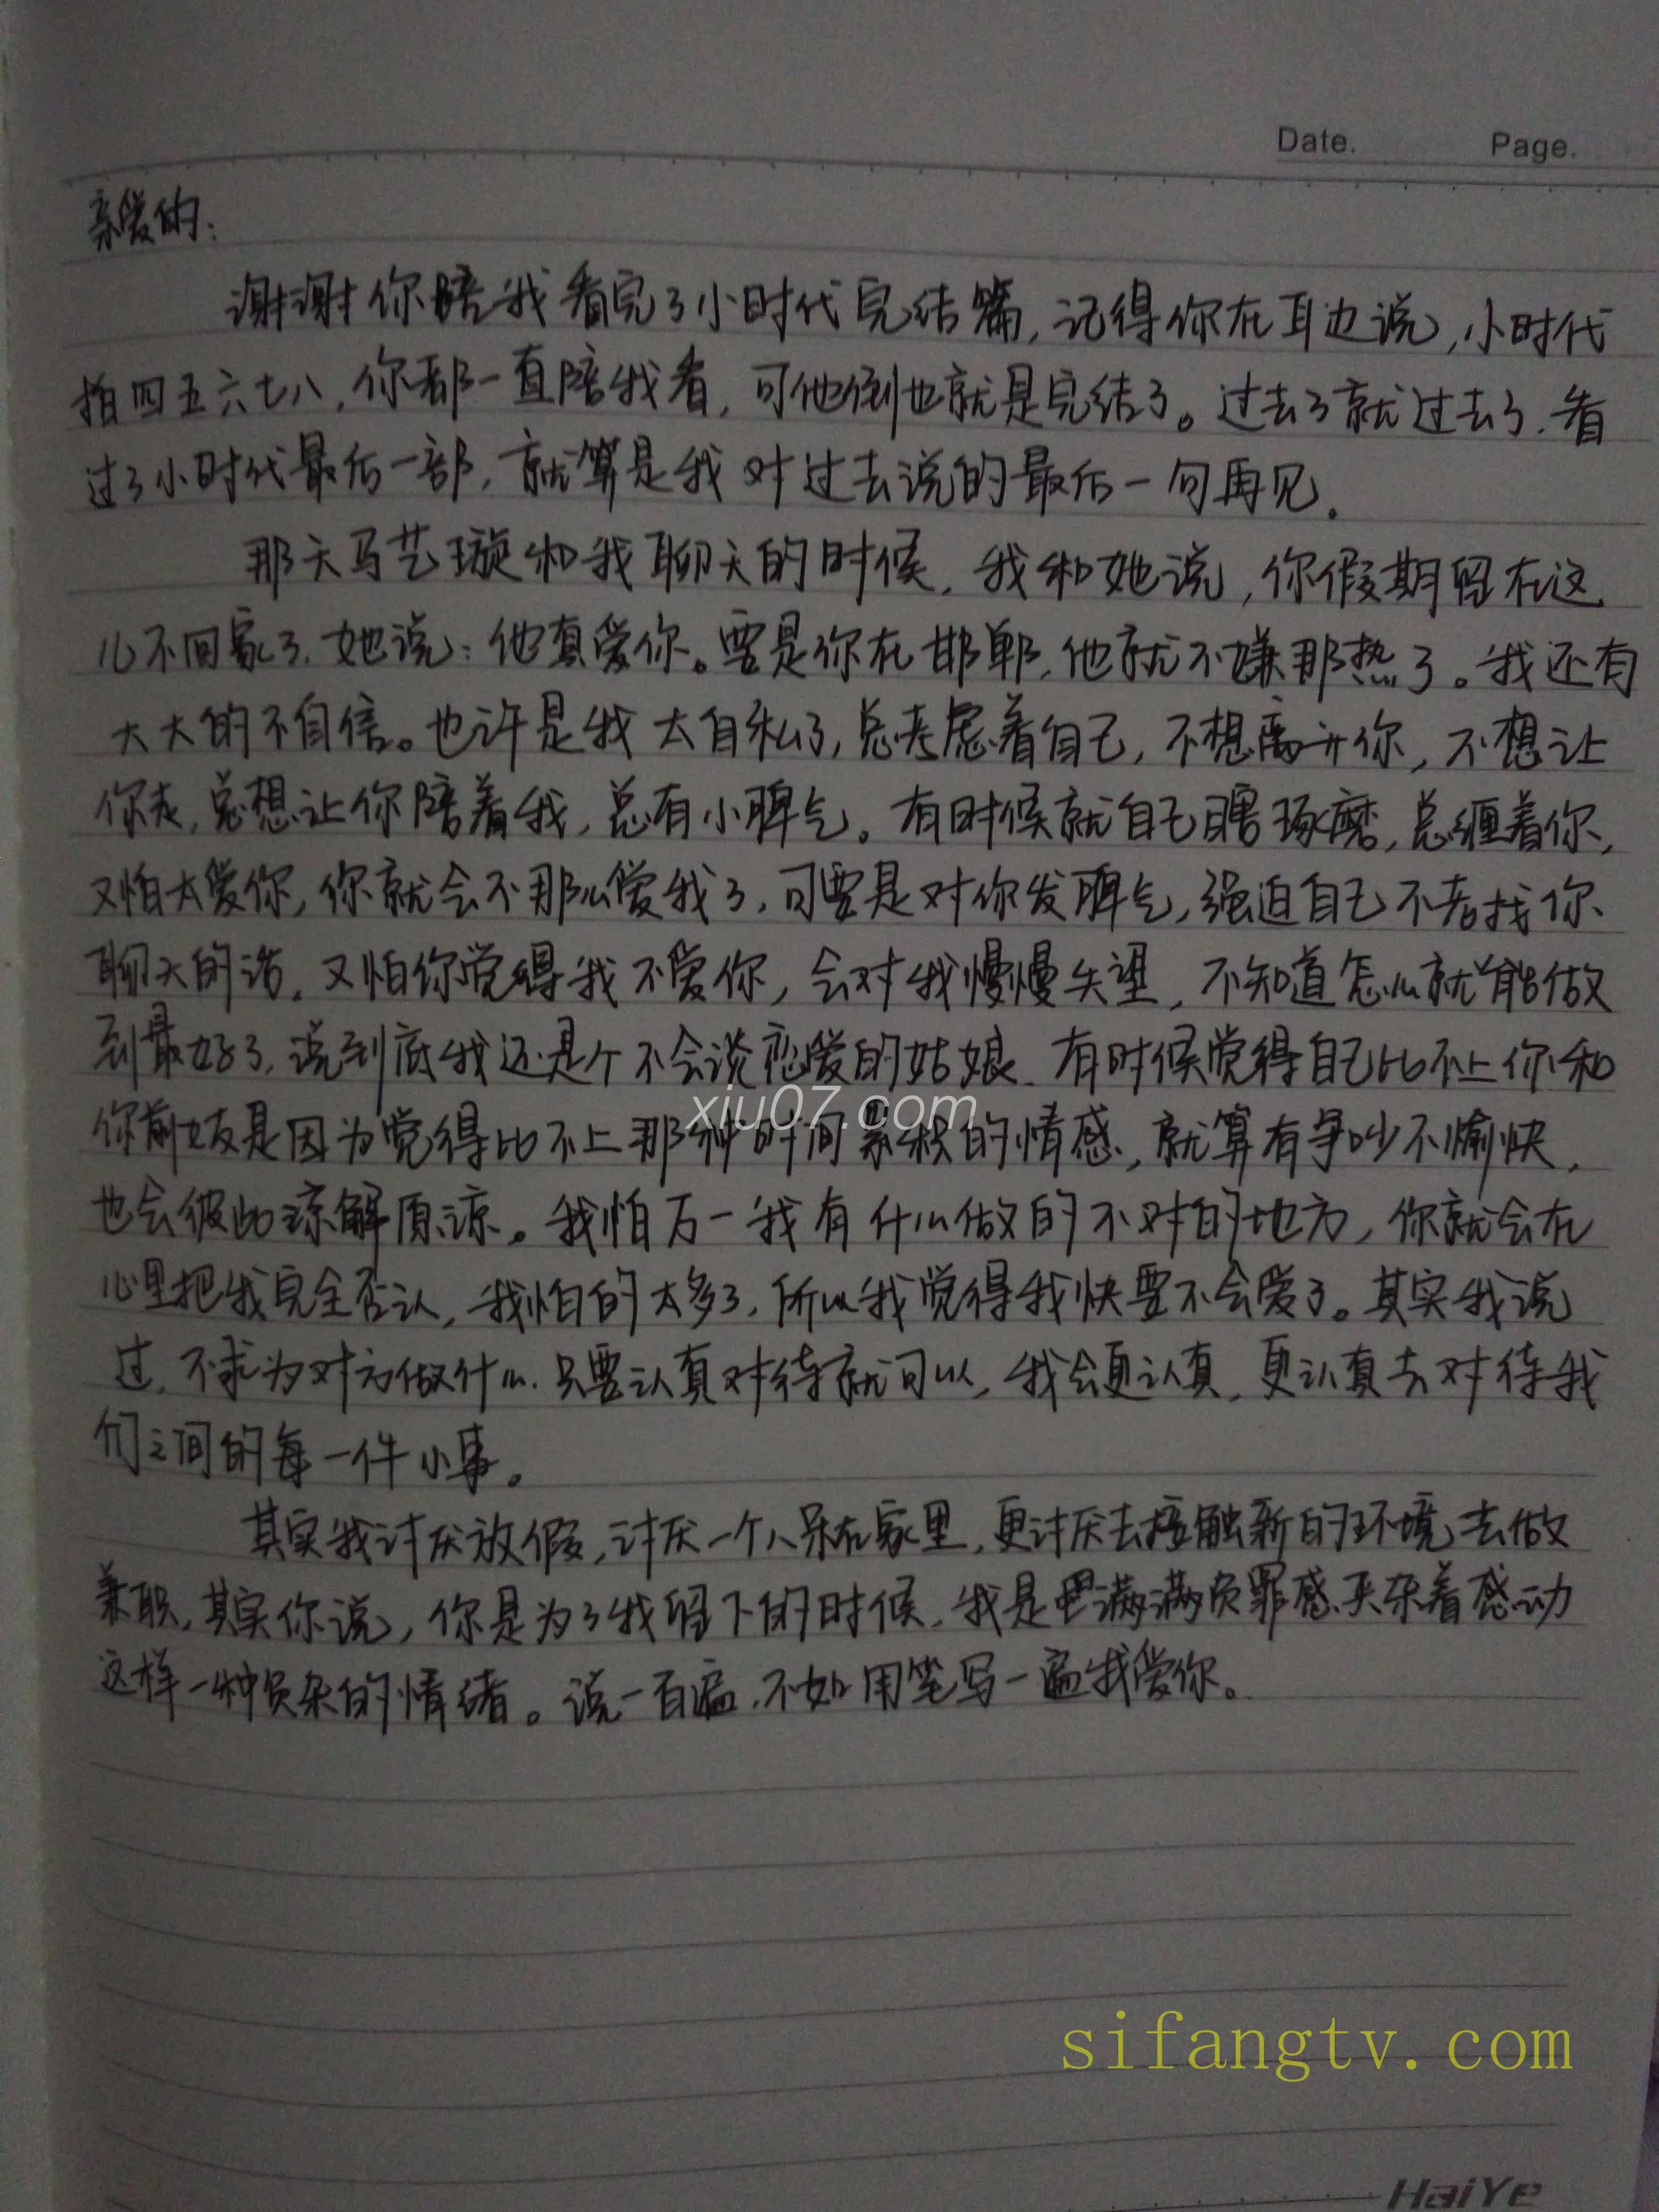 Date. Page.
亲爱的:
谢谢你陪我看完了小时代完结篇,记得你在耳边说,小时代
拍四五六七八,你都一直陪我看,可他倒也就是完结了。过去了就过去了.看
过了小时代最后一部,就算是我对过去说的最后一句再见.
那天马艺璇和我聊天的时候,我和她说,你假期留在这
儿不回家了.她说:他真爱你。要是你在邯郸,他就不嫌那热了。我还有
大大的不自信。也许是我太自私了,总考虑着自己,不想离开你,不想让
你走,总想让你陪着我,总有小脾气。有时候就自己瞎琢磨,总缠着你,
又怕太爱你,你就会不那么爱我了,可要是对你发脾气,强迫自己不去找你
聊天的话,又怕你觉得我不爱你,会对我慢慢失望,不知道怎么就能做
到最好了,说到底我还是个不会谈恋爱的姑娘.有时候觉得自己比不上你和
你前女友是因为觉得比不上那种时间累积的情感,就算有争吵不愉快,
也会彼此谅解原谅。我怕万一我有什么做的不对的地方,你就会在
心里把我完全否认,我怕的太多了,所以我觉得我快要不会爱了。其实我说
过,不求为对方做什么.只要认真对待就可以,我会更认真,更认真去对待我
们之间的每一件小事。
其实我讨厌放假,讨厌一个人呆在家里,更讨厌去接触新的环境去做
兼职,其实你说,你是为了我留下的时候,我是满满负罪感夹杂着感动
这样一种负杂的情绪。说一百遍.不如用笔写一遍我爱你。
xiu07.com
sifangtv.com
HaiYe